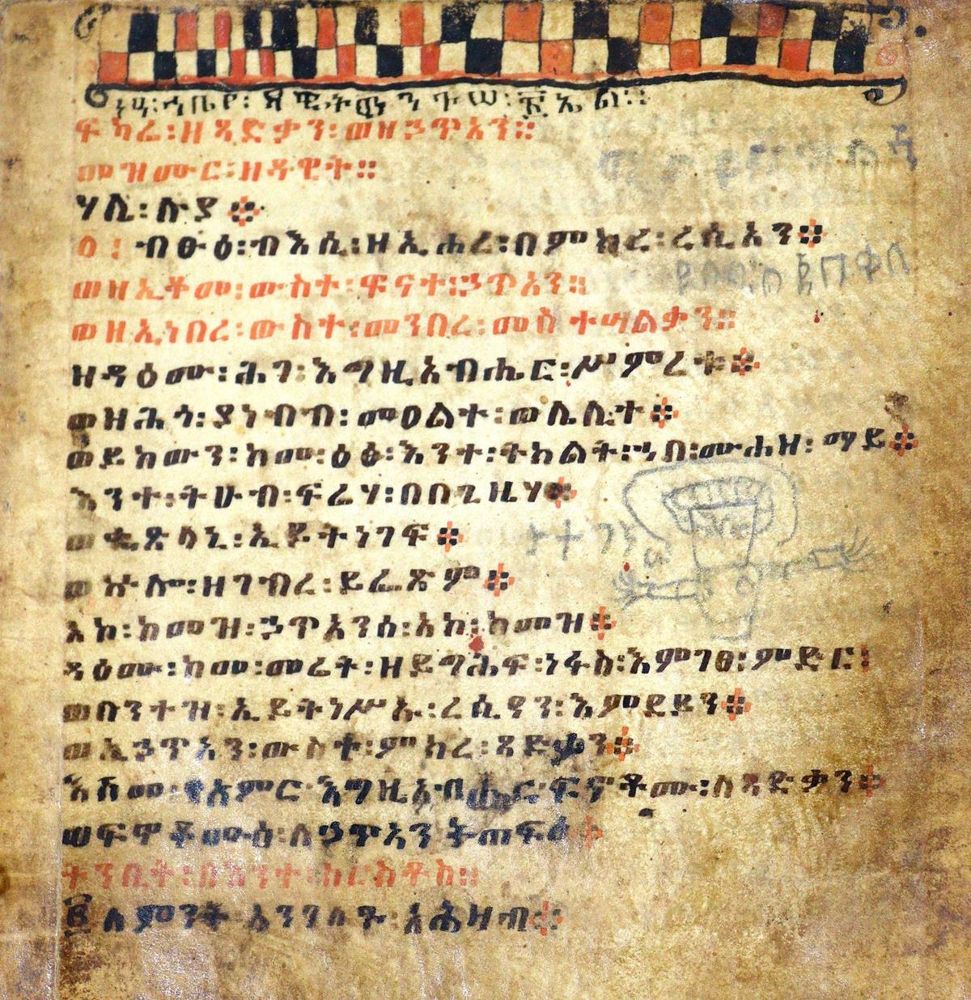 ነዓ፡ ኀቤየ፡ ዳዊት ፡ ንጉሠ፡ ፳ኤል።
ፍካሬ፡ዘጻድቃን፡ወዘኃጥአን።
መዝሙር፡ዘዳዊት።
ሃሌ፡ሉያ።
፩፡ ብፁዕ፡ብእሲ፡ዘኢሖረ፡በምክረ፡ረሲአን።
ወዘኢቆመ፡ውስተ፡ፍናተ፡ኃጥአን።
ወዘኢነበረ፡ውስተ፡መንበረ፡መስተሣልቃን።
ዘዳዕሙ፡ሕገ፡እግዚአብሔር፡ሥምረቱ።
ወዝሕጎ፡ያነብብ፡መዐልተ፡ወሌሊተ።
ወይከውን፡ከመ፡ዕፅ፡እንተ፡ትክልት፡ኀበ፡ሙሐዘ፡ማይ።
እንተ፡ትሁብ፡ፍሬሃ፡በበጊዜሃ።
ወቈጽላኒ፡ኢይትነገፍ።
ወኵሎ፡ዘገብረ፡ይፌጽም።
አኮ፡ከመዝ፡ኃጥአንሰ፡አኮ፡ከመዝ።
ዳዕሙ፡ከመ፡መሬት፡ዘይግሕፍ፡ነፋስ፡እምገፀ፡ምድር፡
ወበንተዝ፡ኢይትነሥኡ፡ረሲዓን፡እምደይን።
ወኢኃጥአን፡ውስተ፡ምክረ፡ጻድቃን።
እስመ፡ያአምር፡እግዚአብሔር፡ፍኖቶሙ፡ለጻድቃን።
ወፍኖቶሙሰ፡ለኃጥአን፡ትጠፍእ።
ትንቢት፡በእንተ፡ክርስቶስ።
፪ ለምንት፡አንገለጉ፡አሕዛብ።